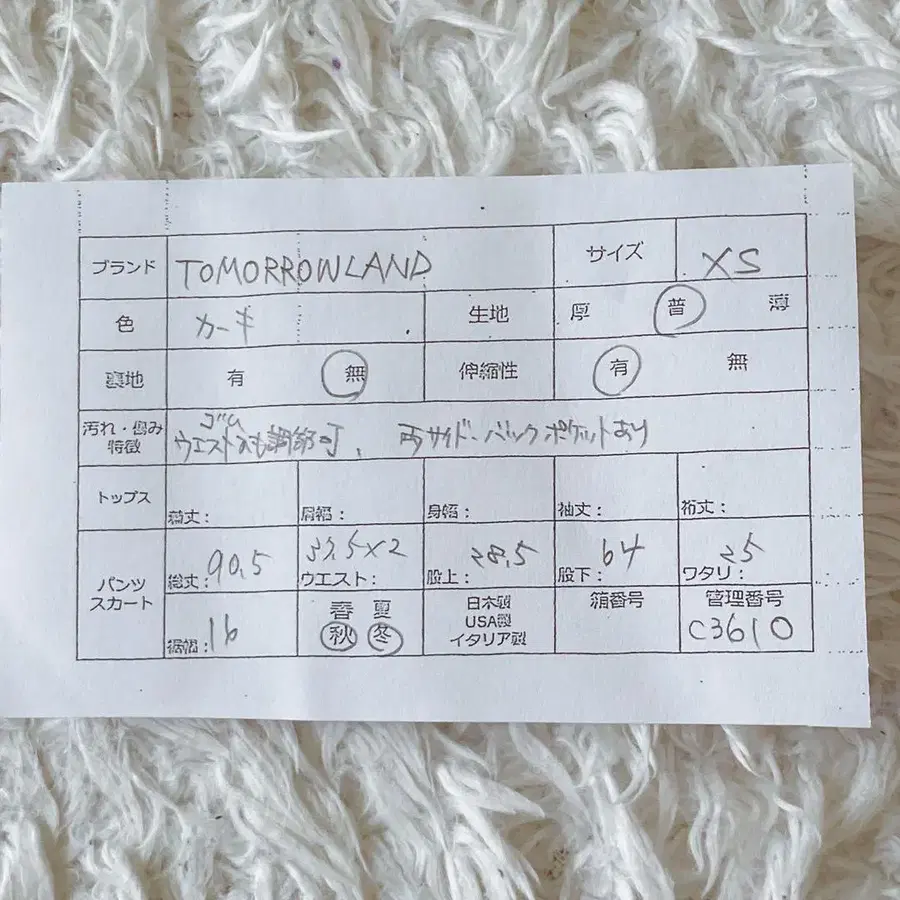 ブランド TOMORROWLAND サイズ XS
色 カーキ 生地 厚 普 薄
裏地 有 無 伸縮性 有 無
汚れ・傷み 特徴 ゴム
ウエスト 調節可、両サイド・バックポケットあり
トップス 着丈: 肩幅: 身幅: 袖丈: 裄丈:
パンツ スカート 総丈:90.5 ウエスト: 37.5×2 股上:28.5 股下:64 ワタリ:25
裾幅:16 春 夏 秋 冬 日本製 USA製 イタリア製 箱番号 管理番号 C3610